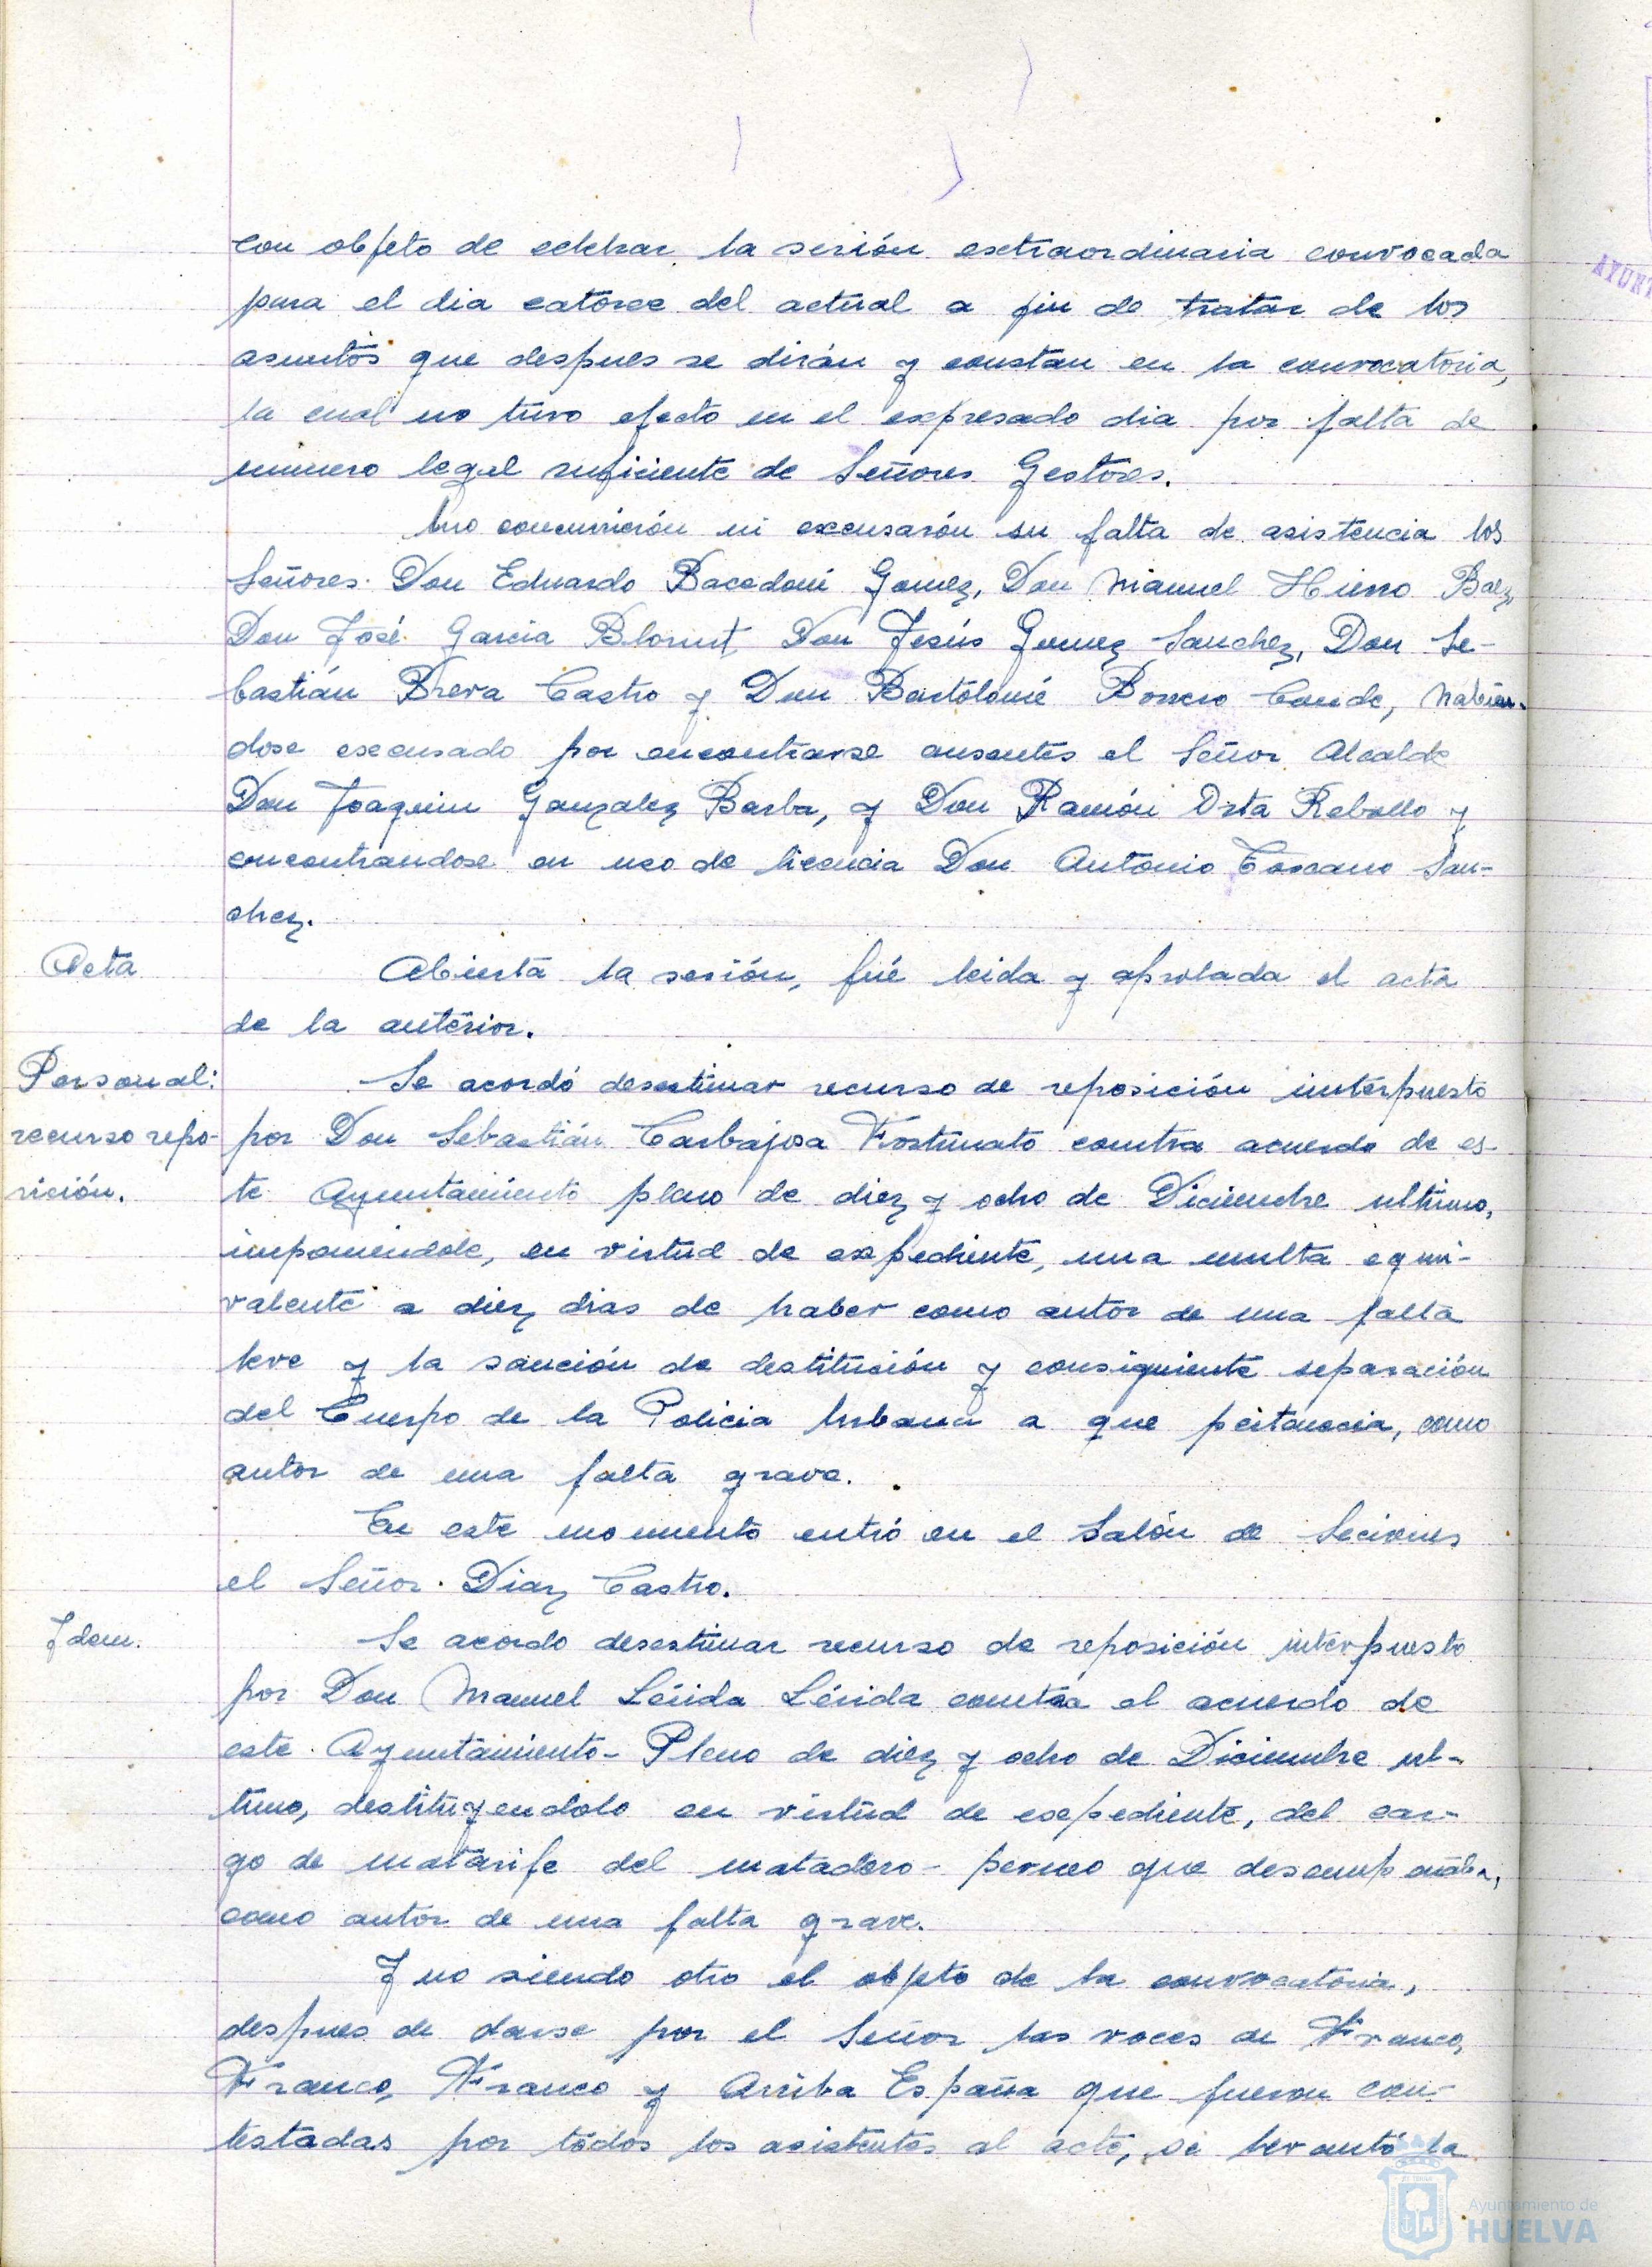 con objeto de celebrar la sesión extraordinaria convocada
para el dia catorce del actual a fin de tratar de los
asuntos que despues se dirán y constan en la convocatoria,
la cual no tuvo efecto en el expresado dia por falta de
numero legal suficiente de Señores Gestores.
No concurrierón ni excusarón su falta de asistencia los
Señores Don Eduardo Bacedoni Gomez, Don Manuel Hierro Baez,
Don José Garcia Don Jesús Gomez Sanchez, Don Se-
bastián Breva Castro y Don Bartólomé Borrero Conde, habien-
dose excusado por encontrarse ausentes el Señor Alcalde
Don Joaquin Gonzalez Barba, y Don Ramón Orta Rebollo y
encontrandose en uso de licencia Don Antonio Toscano San-
chez.
Acta
Abierta la sesión, fué leida y aprobada el acta
de la anterior.
Personal:
recurso repo-
sición.
Se acordó desestimar recurso de reposición interpuesto
por Don Sebastián Carbajosa Fortunato contra acuerdo de es-
te Ayuntamiento pleno de diez y ocho de Diciembre ultimo,
imponiendole, en virtud de expediente, una multa equi-
valente a diez dias de haber como autor de una falta
leve y la sanción de destitución y consiguiente separación
del Cuerpo de la Policia Urbana a que pertenecia, como
autor de una falta grave.
En este momento entró en el Salón de Seciones
el Señor Diaz Castro.
Idem.
Se acordo desestimar recurso de reposición interpuesto
por Don Manuel Lérida Lérida contra el acuerdo de
este Ayuntamiento-Pleno de diez y ocho de Diciembre ul-
timo, destituyendolo en virtud de expediente, del car-
go de matarife del matadero- que desempeñaba,
como autor de una falta grave.
Y no siendo otro el objeto de la convocatoria,
despues de darse por el Señor las voces de Franco,
Franco, Franco y Arriba España que fueron con-
testadas por todos los asistentes al acto, se levantó la
Ayuntamiento de
HUELVA